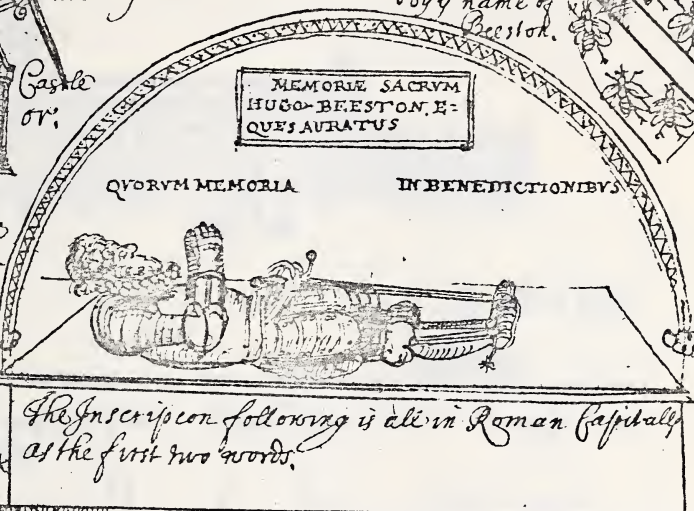 name of
Beeston.
Castle
or:
MEMORIÆ SACRVM
HUGO BEESTON, E=
QUES AURATUS
QVORVM MEMORIA
IN BENEDICTIONIBVS
The Inscripcon following is all in Roman Capitalls
as the first two words.